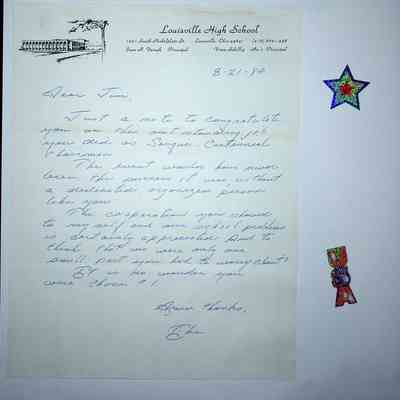 Louisville High School
Louisville, Ohio
Principal
Principal
8-21-84
Dear Jim,
Just a note to congratulate
you on the outstanding job
you did as Sesqui Centennial
chairman
The event would have never
been the success it was without
a dedicated organized person
like you
The cooperation you showed
to myself and our school problems
is certainly appreciated and to
think that we were only one
small part you had to worry about!
It is no wonder you
were chosen #1
Again thanks,